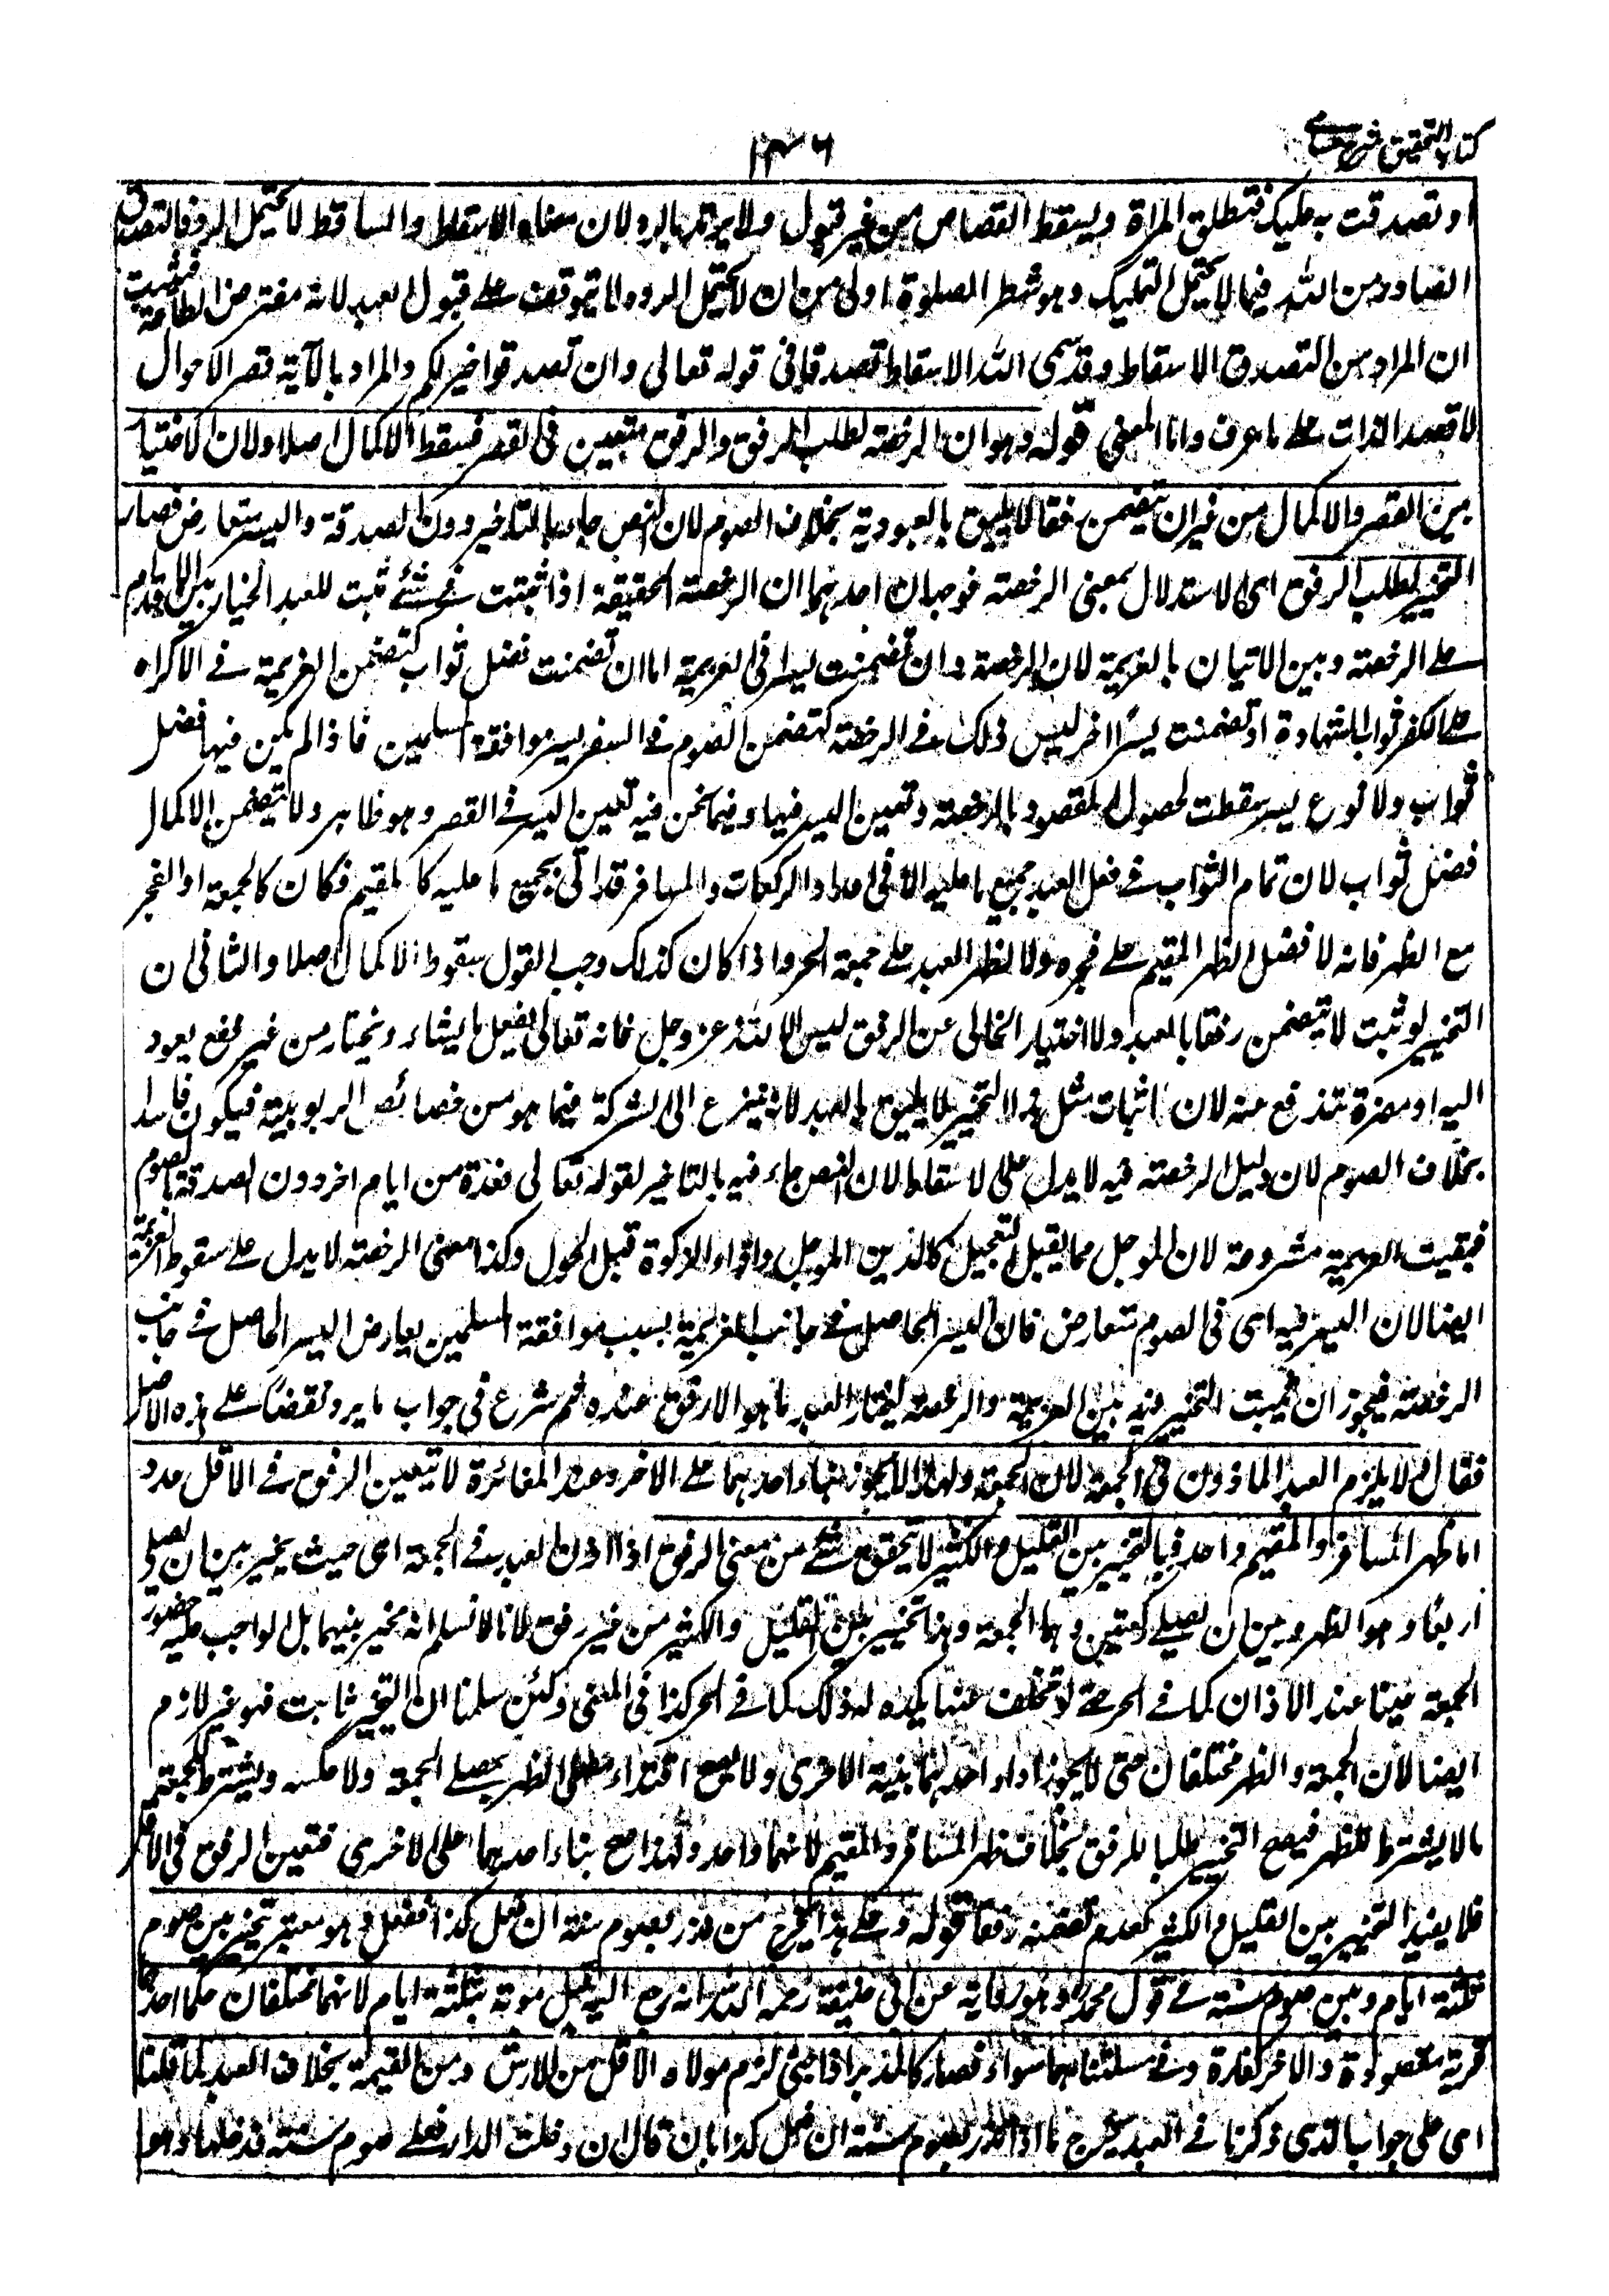 كتاب التحقيق شرح حسامی
١٣٦
او تصدقت به عليك فتطلق المراة ويسقط القصاص من غير قبول ولا يرتد بالرد لان معناه الاسقاط والساقط لا يحتمل الرد فالتصدق
الصادر من الله فيما لا يحتمل التمليك وهو شطر الصلوة اولى من ان لا يحتمل الرد ولا يتوقف على قبول العبد لانه مفترض الطاعة فثبت
ان المراد من التصدق الاسقاط وقد سمى الله الاسقاط تصدقا فى قوله تعالى وان تصدقوا خير لكم والمراد بالآية قصر الاحوال
لا قصر الذات على ما عرف واما المعنى قوله وهو ان الرخصة لطلب الرفق والرفق متعين فى القصر فيسقط الاكمال اصلا ولان الاختيار
بين القصر والاكمال من غير ان يتضمن رفقا لا يليق بالعبودية بخلاف الصوم لان النص جاء بالتاخير دون الصدقة واليسر متعارض فصار
التخيير لطلب الرفق اى الاستدلال بمعنى الرخصة فوجهان احدهما ان الرخصة الحقيقة اذا ثبتت فى شئ ثبت للعبد الخيار بين الاقدام
على الرخصة وبين الاتيان بالعزيمة لان الرخصة وان تضمنت يسرا فى العزيمة اما ان تضمنت فضل ثواب كتضمن العزيمة فى الاكراه
على الكفر ثواب الشهادة او تضمنت يسرا اخر ليس ذلك فى الرخصة كتضمن الصوم فى السفر يسر موافقة المسلمين فاذا لم يكن فيها فضل
ثواب ولا نوع يسر سقطت لحصول المقصود بالرخصة وتعين اليسر فيها وفيما نحن فيه تعين اليسر فى القصر وهو ظاهر ولا يتضمن الاكمال
فضل ثواب لان تمام الثواب فى فعل العبد جميع ما عليه لا فى اعداد الركعات والمسافر قد اتى بجميع ما عليه كالمقيم فكان كالجمعة او الفجر
مع الظهر فانه لا فضل لظهر المقيم على فجره ولا لظهر العبد على جمعة الحر واذا كان كذلك وجب القول بسقوط الاكمال اصلا والثانى ان
التخيير لو ثبت لا يتضمن رفقا بالعبد ولا اختيار الخالى عن الرفق ليس الا لله عز وجل فانه تعالى يفعل ما يشاء ويختار من غير نفع يعود
اليه او مضرة تندفع عنه لان اثبات مثل هذا التخيير لا يليق بالعبد لانه ينزع الى الشركة فيما هو من خصائص الربوبية فيكون فاسدا
بخلاف الصوم لان دليل الرخصة فيه لا يدل على الاسقاط لان النص جاء فيه بالتاخير لقوله تعالى فعدة من ايام اخر دون الصدقة بالصوم
فبقيت العزيمة مشروعة لان المؤجل مما يقبل التعجيل كالدين المؤجل واداء الزكوة قبل الحول وكذا معنى الرخصة لا يدل على سقوط العزيمة
ايضا لان اليسر فيه اى فى الصوم متعارض فان اليسر الحاصل فى جانب العزيمة بسبب موافقة المسلمين يعارض اليسر الحاصل فى جانب
الرخصة فيجوز ان يثبت التخيير فيه بين العزيمة والرخصة ليختار العبد ما هو الارفق عنده ثم شرع فى جواب ما يرد نقضا على هذه الاصل
فقال ولا يلزم العبد الماذون فى الجمعة لان الجمعة ولهذا لا يجوز بناء احدهما على الاخر وعند المغائرة لا يتعين الرفق فى الاقل عددا
اما ظهر المسافر والمقيم واحد فبالتخيير بين القليل والكثير لا يتحقق شئ من معنى الرفق اذا اذن العبد فى الجمعة اى حيث يخير بين ان يصلى
اربعا وهو الظهر وبين ان يصلى ركعتين وهما الجمعة وهذا تخيير بين القليل والكثير من غير رفق لانا لا نسلم انه مخير بينهما بل الواجب عليه حضور
الجمعة عينا عند الاذان كما فى الحر حتى لو تخلف عنها يكره له ذلك كما فى الحر كذا فى المغنى ولئن سلمنا ان التخيير ثابت فهو غير لازم
ايضا لان الجمعة والظهر مختلفان حتى لا يجوز اداء احدهما بنية الاخرى ولا يصح اقتداء مصلى الظهر بمصلى الجمعة ولا عكسه ويشترط للجمعة
ما لا يشترط للظهر فيصح التخيير طلبا للرفق بخلاف ظهر المسافر والمقيم لانهما واحد ولهذا صح بناء احدهما على الاخرى فتعين الرفق فى الاقل
فلا يفيد التخيير بين القليل والكثير لعدم تضمنه رفقا قوله وعلى هذا يخرج من نذر بصوم سنة ان فعل كذا ففعل وهو معسر يخير بين صوم
ثلثة ايام وبين صوم سنة فى قول محمد وهو رواية عن ابى حنيفة رحمه الله انه رجع اليه قبل موته بثلثة ايام لانهما مختلفان حكما احدهما
قربة مقصودة والاخر كفارة وفى مسئلتنا هما سواء فصار كالمدبر اذا جنى لزم مولاه الاقل من الارش ومن القيمة بخلاف العبد لما قلنا
اى على جواب الذى ذكرنا فى العبد يخرج ما اذا نذر بصوم سنة ان فعل كذا بان قال ان دخلت الدار فعلى صوم سنة فدخلها وهو